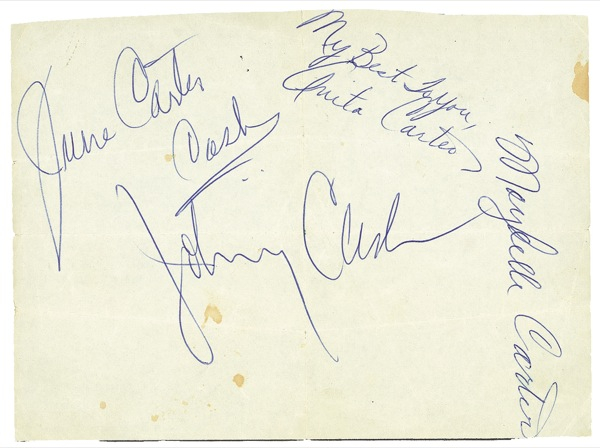 June Carter
Cash
My Best to you,
Anita Carter
Johnny Cash
Maybelle Carter